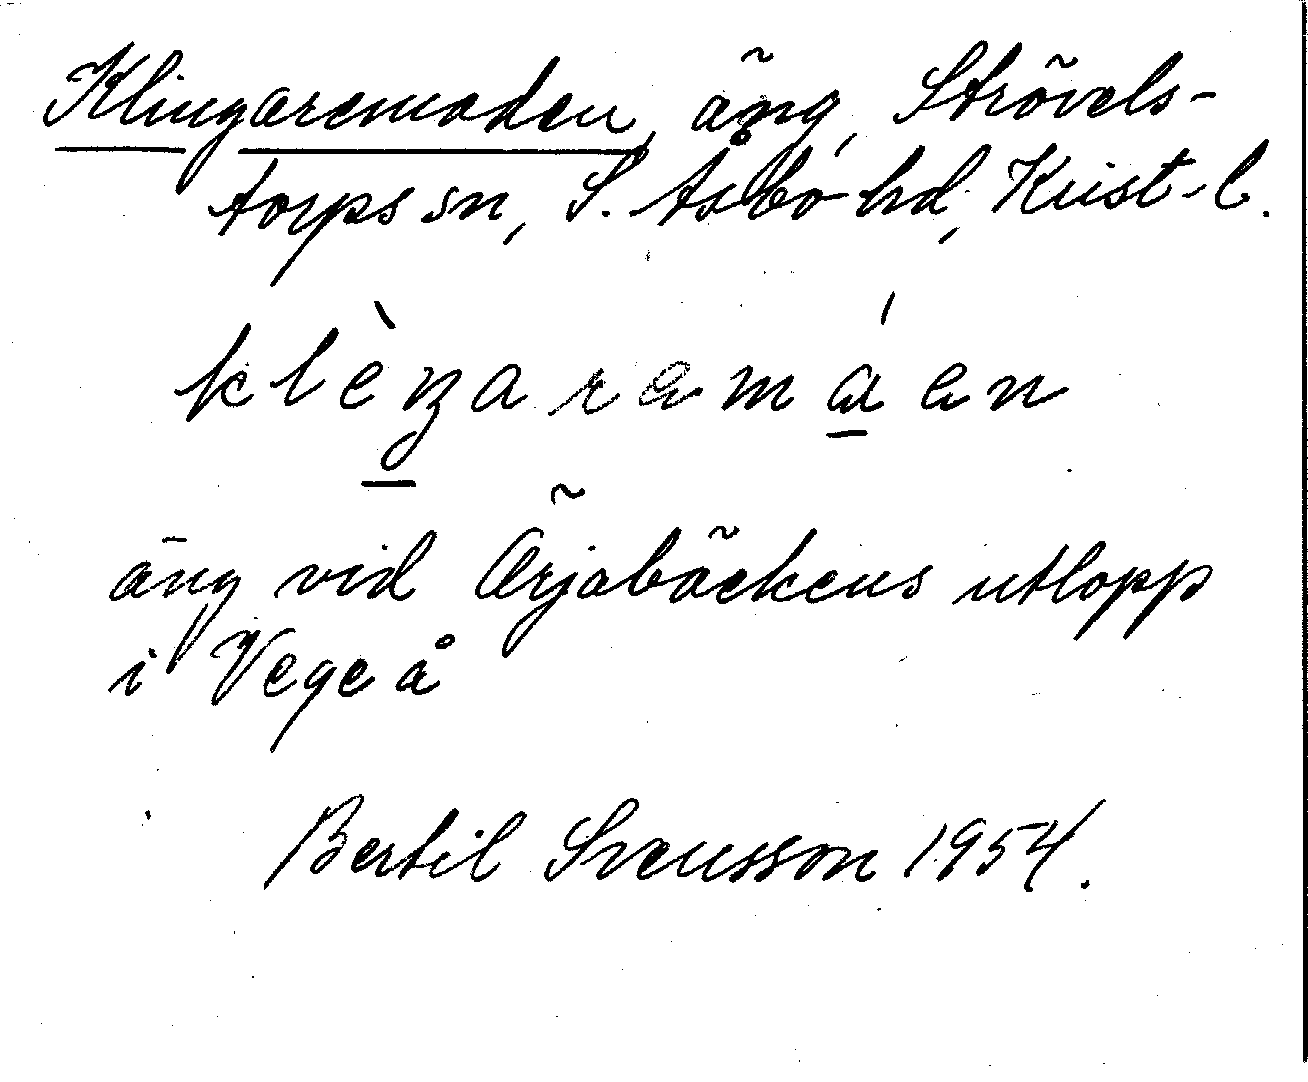 Klingaremaden, äng, Strövels-
torps sn, S. Åsbo hd, Krist-l.
klèŋaramáen
äng vid Örjabäckens utlopp
i Vege å
Bertil Svensson 1954.